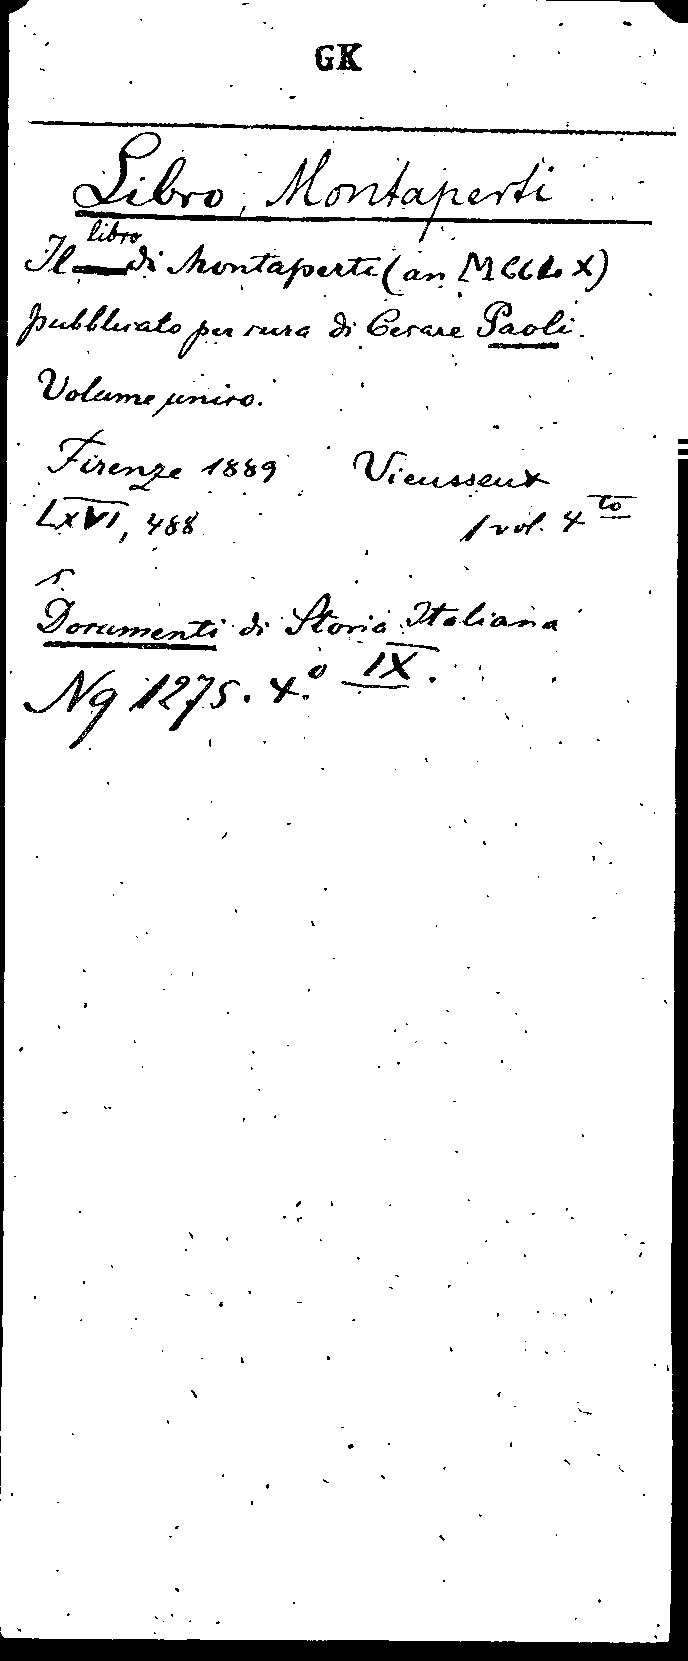 GK
Libro, Montaperti
Il libro di Montaperti (an MCCLX)
pubblicato per cura di Cesare Paoli.
Volume unico.
Firenze 1889 Vieusseux
LXVI, 488 1 vol. 4to
Documenti di Storia Italiana
Ng 1275. 4.º IX.